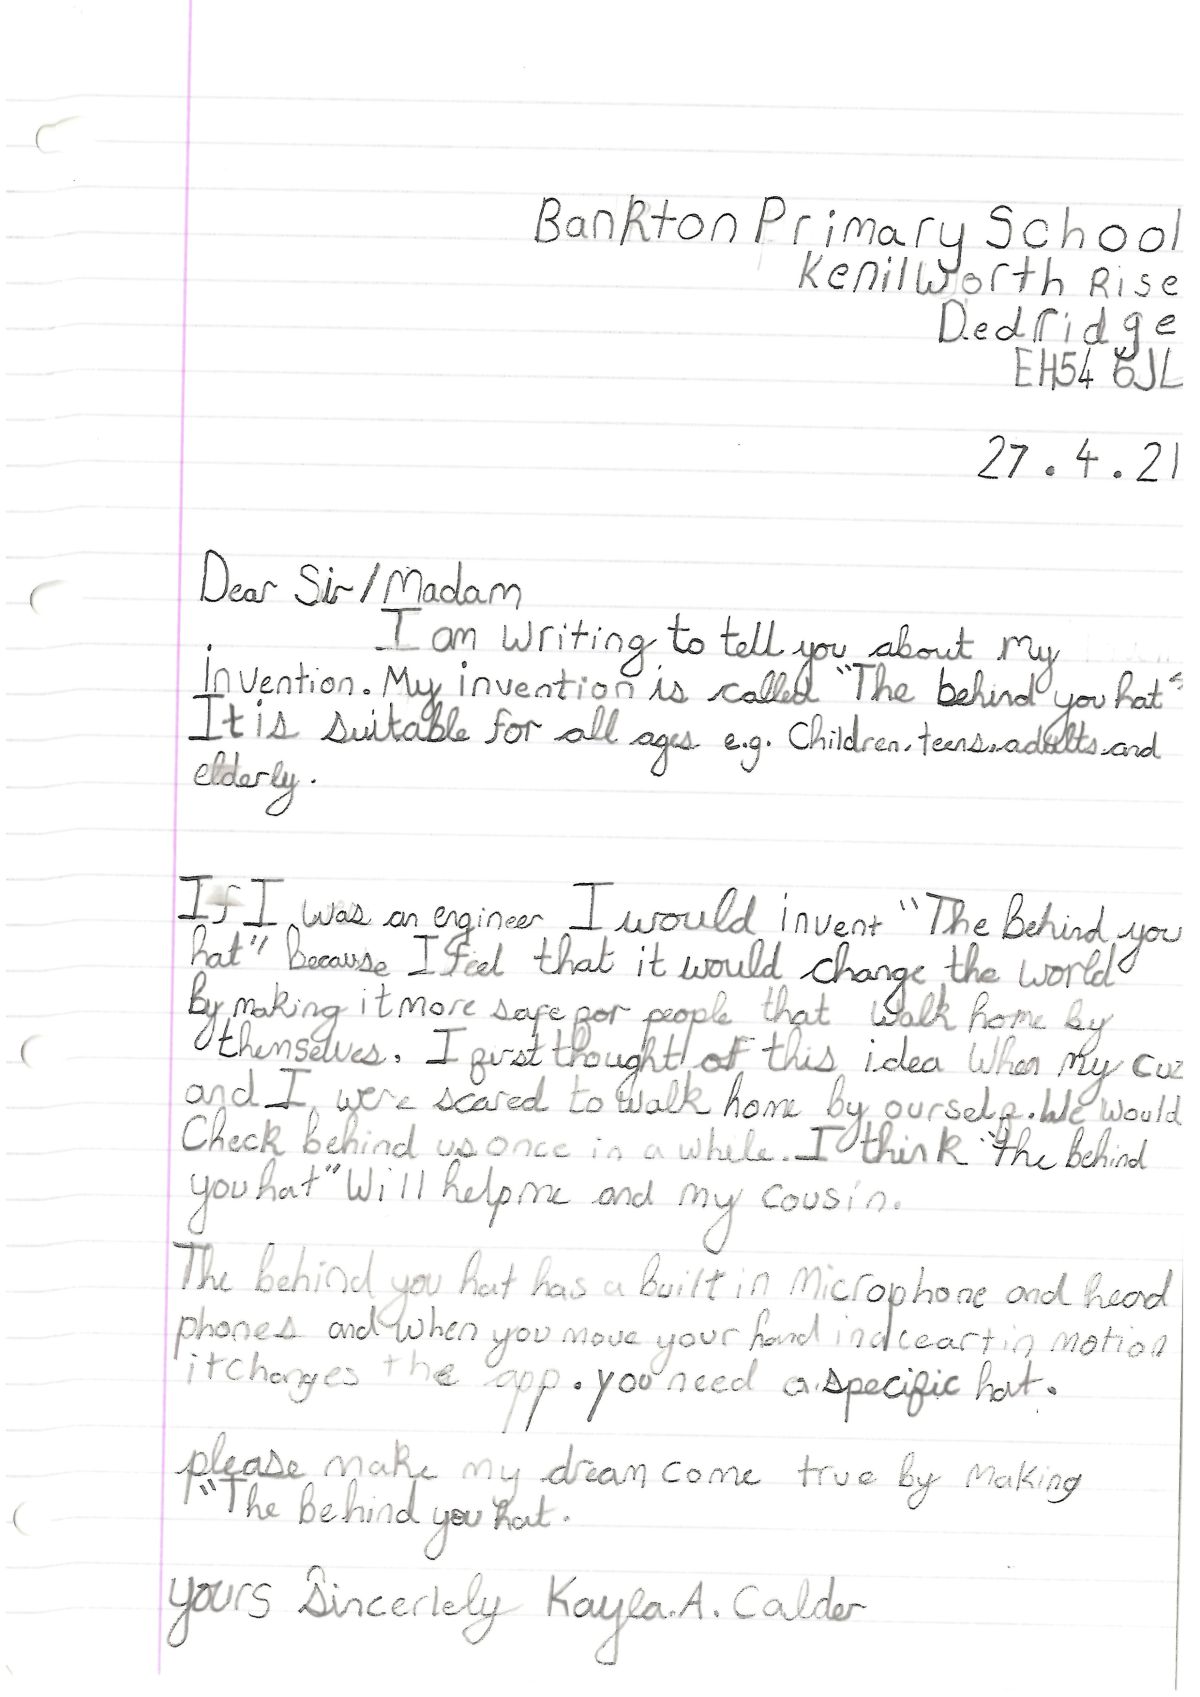 Bankton Primary School
Kenilworth Rise
Dedridge
EH54 6JL
27.4.21
Dear Sir/Madam
I am writing to tell you about my
invention. My invention is called "The behind you hat"
It is suitable for all ages e.g. Children, teens, adults and
elderly.
If I was an engineer I would invent "The Behind you
hat" because I feel that it would change the world
By making it more safe for people that walk home by
themselves. I first thought of this idea when my cuz
and I were scared to walk home by ourself. We would
Check behind us once in a while. I think "the behind
you hat" Will help me and my cousin.
The behind you hat has a built in microphone and head
phones and when you move your hand in a ceartin motion
it changes the app. you need a specific hat.
please make my dream come true by making
"The Behind you hat.
yours Sincerlely Kayla.A. Calder